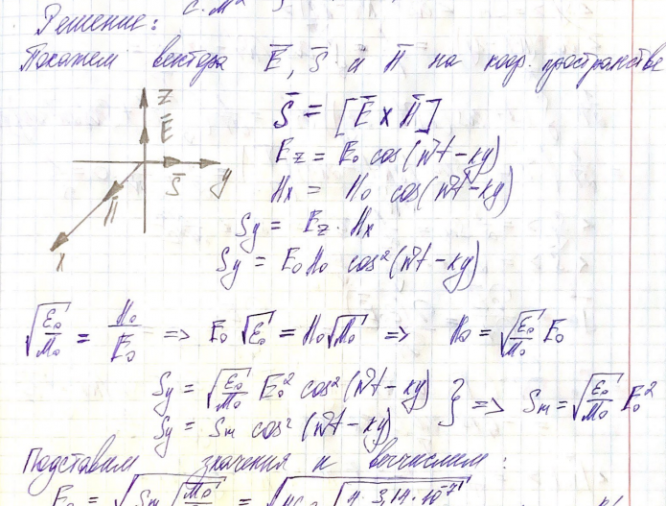 Решение:
Покажем вектора E̅, S̅ и H̅ на коор. пространстве
z
E̅
S̅
y
H̅
x
S̅ = [E̅ × H̅]
Ez = E₀ cos(ωt − ky)
Hx = H₀ cos(ωt − ky)
Sy = Ez · Hx
Sy = E₀H₀ cos²(ωt − ky)
√(ε₀/μ₀) = H₀/E₀ => E₀√ε₀ = H₀√μ₀ => H₀ = √(ε₀/μ₀) E₀
Sy = √(ε₀/μ₀) E₀² cos²(ωt − ky)
Sy = Sm cos²(ωt − ky) } => Sm = √(ε₀/μ₀) E₀²
Подставим значения и вычислим: